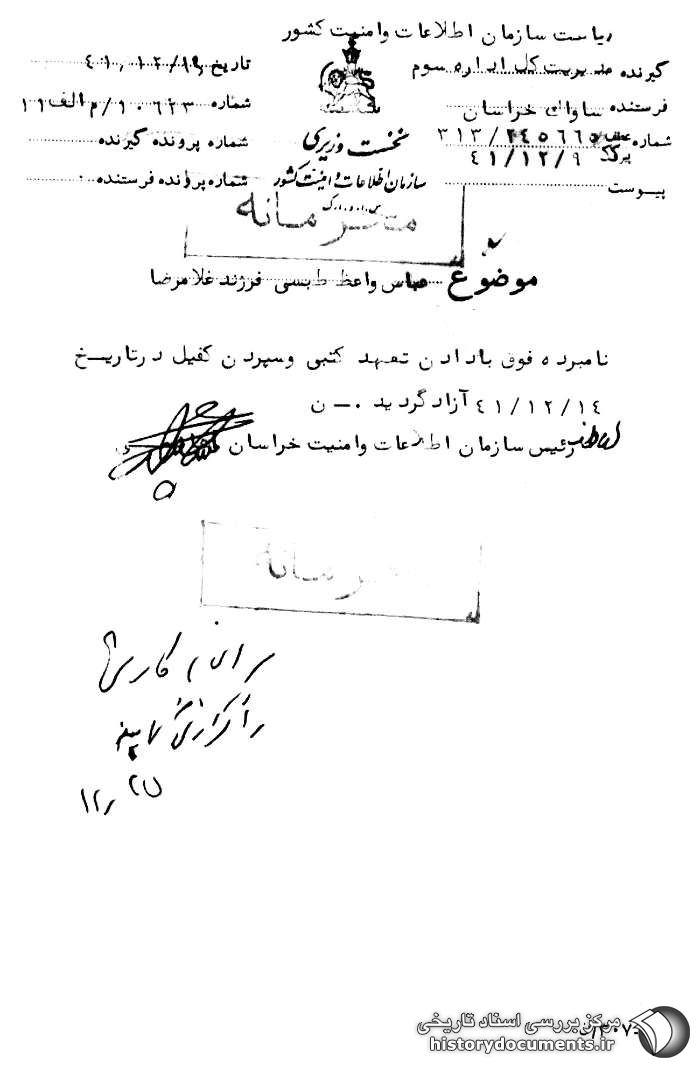 ریاست سازمان اطلاعات وامنیت کشور
گیرنده مدیریت کل اداره سوم
فرستنده ساواک خراسان
شماره ۳۱۳/۲۴۵۶۶۵
۴۱/۱۲/۹
پیوست
نخست وزیری
سازمان اطلاعات و امنیت کشور
س.ا.و.ا.ک
تاریخ ۴۱/۱۲/۱۹
شماره ۱۰۶۲۳/م الف ۱۹
شماره پرونده گیرنده
شماره پرونده فرستنده
محرمانه
موضوع عباس واعظ طبسی فرزند غلامرضا
نامبرده فوق بادادن تعهد کتبی وسپردن کفیل درتاریخ
۴۱/۱۲/۱۴ آزاد گردید ۰ـ ن
رئیس سازمان اطلاعات وامنیت خراسان
محرمانه
۱۲/۲۵
مرکز بررسی اسناد تاریخی
historydocuments.ir